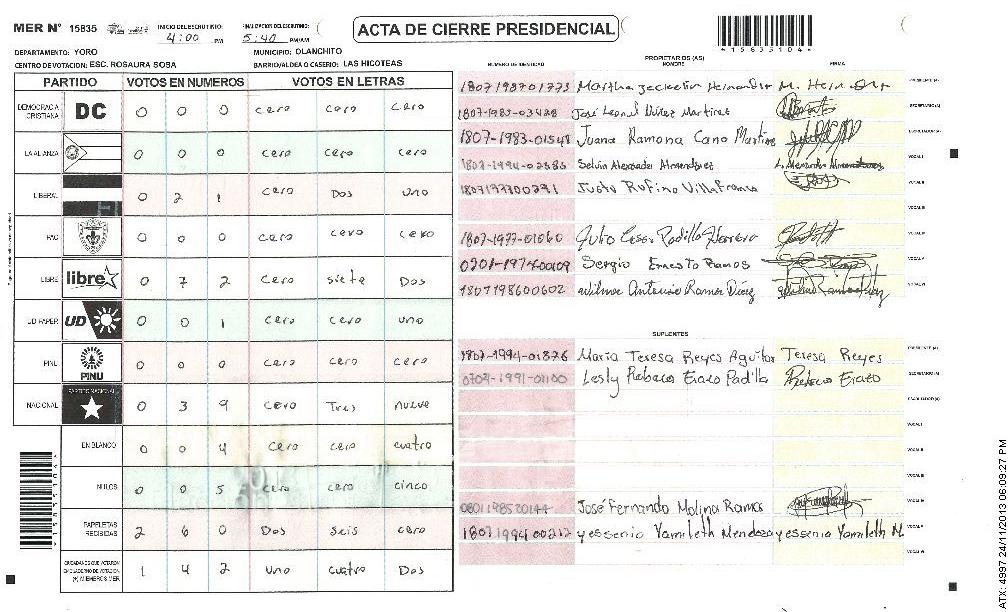 MER Nº 15835 INICIO DEL ESCRUTINIO: 4:00 PM FINALIZACION DEL ESCRUTINIO: 5:40 PM/AM
ACTA DE CIERRE PRESIDENCIAL
15835104
DEPARTAMENTO: YORO MUNICIPIO: OLANCHITO
CENTRO DE VOTACION: ESC. ROSAURA SOSA BARRIO/ALDEA O CASERIO: LAS HICOTEAS
PARTIDO VOTOS EN NUMEROS VOTOS EN LETRAS
DEMOCRACIA CRISTIANA DC 0 0 0 cero cero cero
LA ALIANZA 0 0 0 cero cero cero
LIBERAL 0 2 1 cero Dos uno
PAC 0 0 0 cero cero cero
LIBRE libre 0 7 2 cero siete Dos
UD FAPER UD 0 0 1 cero cero uno
PINU PINU 0 0 0 cero cero cero
NACIONAL PARTIDO NACIONAL 0 3 9 cero Tres nueve
EN BLANCO 0 0 4 cero cero cuatro
NULOS 0 0 5 cero cero cinco
PAPELETAS RECIBIDAS 2 6 0 Dos Seis cero
CIUDADANOS QUE VOTARON EN CUADERNO DE VOTACION (+) MIEMBROS MER 1 4 2 uno cuatro Dos
PROPIETARIOS (AS)
NUMERO DE IDENTIDAD NOMBRE FIRMA
1807198701773 Martha Jackelin Hernandez PRESIDENTE (A)
1807-1983-03488 José Leonel Nuñez Martinez SECRETARIO (A)
1807-1983-01548 Juana Ramona Cano Martinez ESCRUTADOR (A)
1807-1994-02383 Selvin Alexander VOCAL I
Justo Rufino Villafranca VOCAL II
VOCAL III
1807-1977-01060 Julio Cesar Padilla Herrera VOCAL IV
0201-1974-00109 Sergio Ernesto Ramos VOCAL V
1807198600602 Wilmer Antonio Ramos Díaz VOCAL VI
SUPLENTES
1807-1994-01876 María Teresa Reyes Aguilar Teresa Reyes PRESIDENTE (A)
0709-1991-01100 Lesly Rebeca Erazo Padilla Rebeca Erazo SECRETARIO (A)
ESCRUTADOR (A)
VOCAL I
VOCAL II
VOCAL III
0801198520144 José Fernando Molina Ramos VOCAL IV
1807199400212 yessenia Yamileth Mendoza yessenia Yamileth M. VOCAL V
VOCAL VI
ATX: 4997 24/11/2013 06:09:27 PM